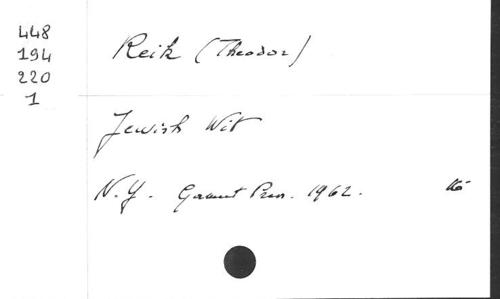 448
194
220
1
Reik (Theodor)
Jewish Wit
N.Y. Gamut Press. 1962.